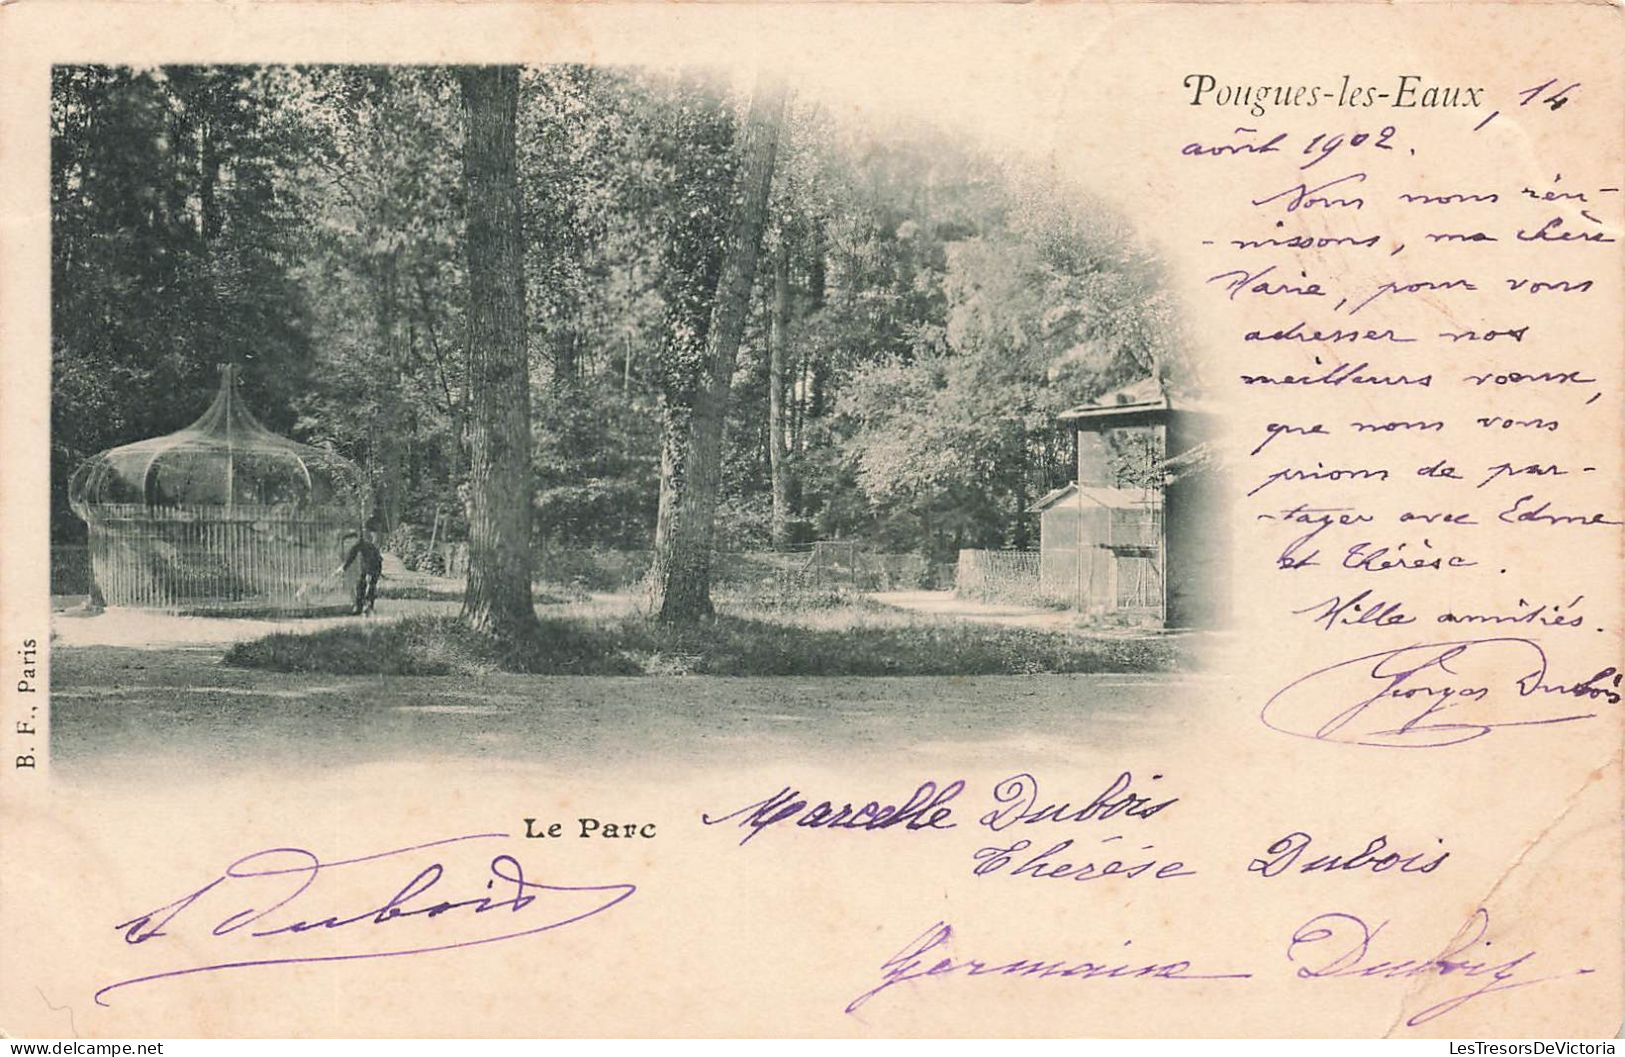 Pougues-les-Eaux, 14
août 1902.
Nous nous réu-
-nissons, ma chère
Marie, pour vous
adresser nos
meilleurs voeux,
que nous vous
prions de par-
-tager avec Edme
et Thérèse.
Mille amitiés.
Georges Dubois
B. F., Paris
Le Parc
Marcelle Dubois
Thérèse Dubois
Dubois
Germaine Dubois
LesTresorsDeVictoria